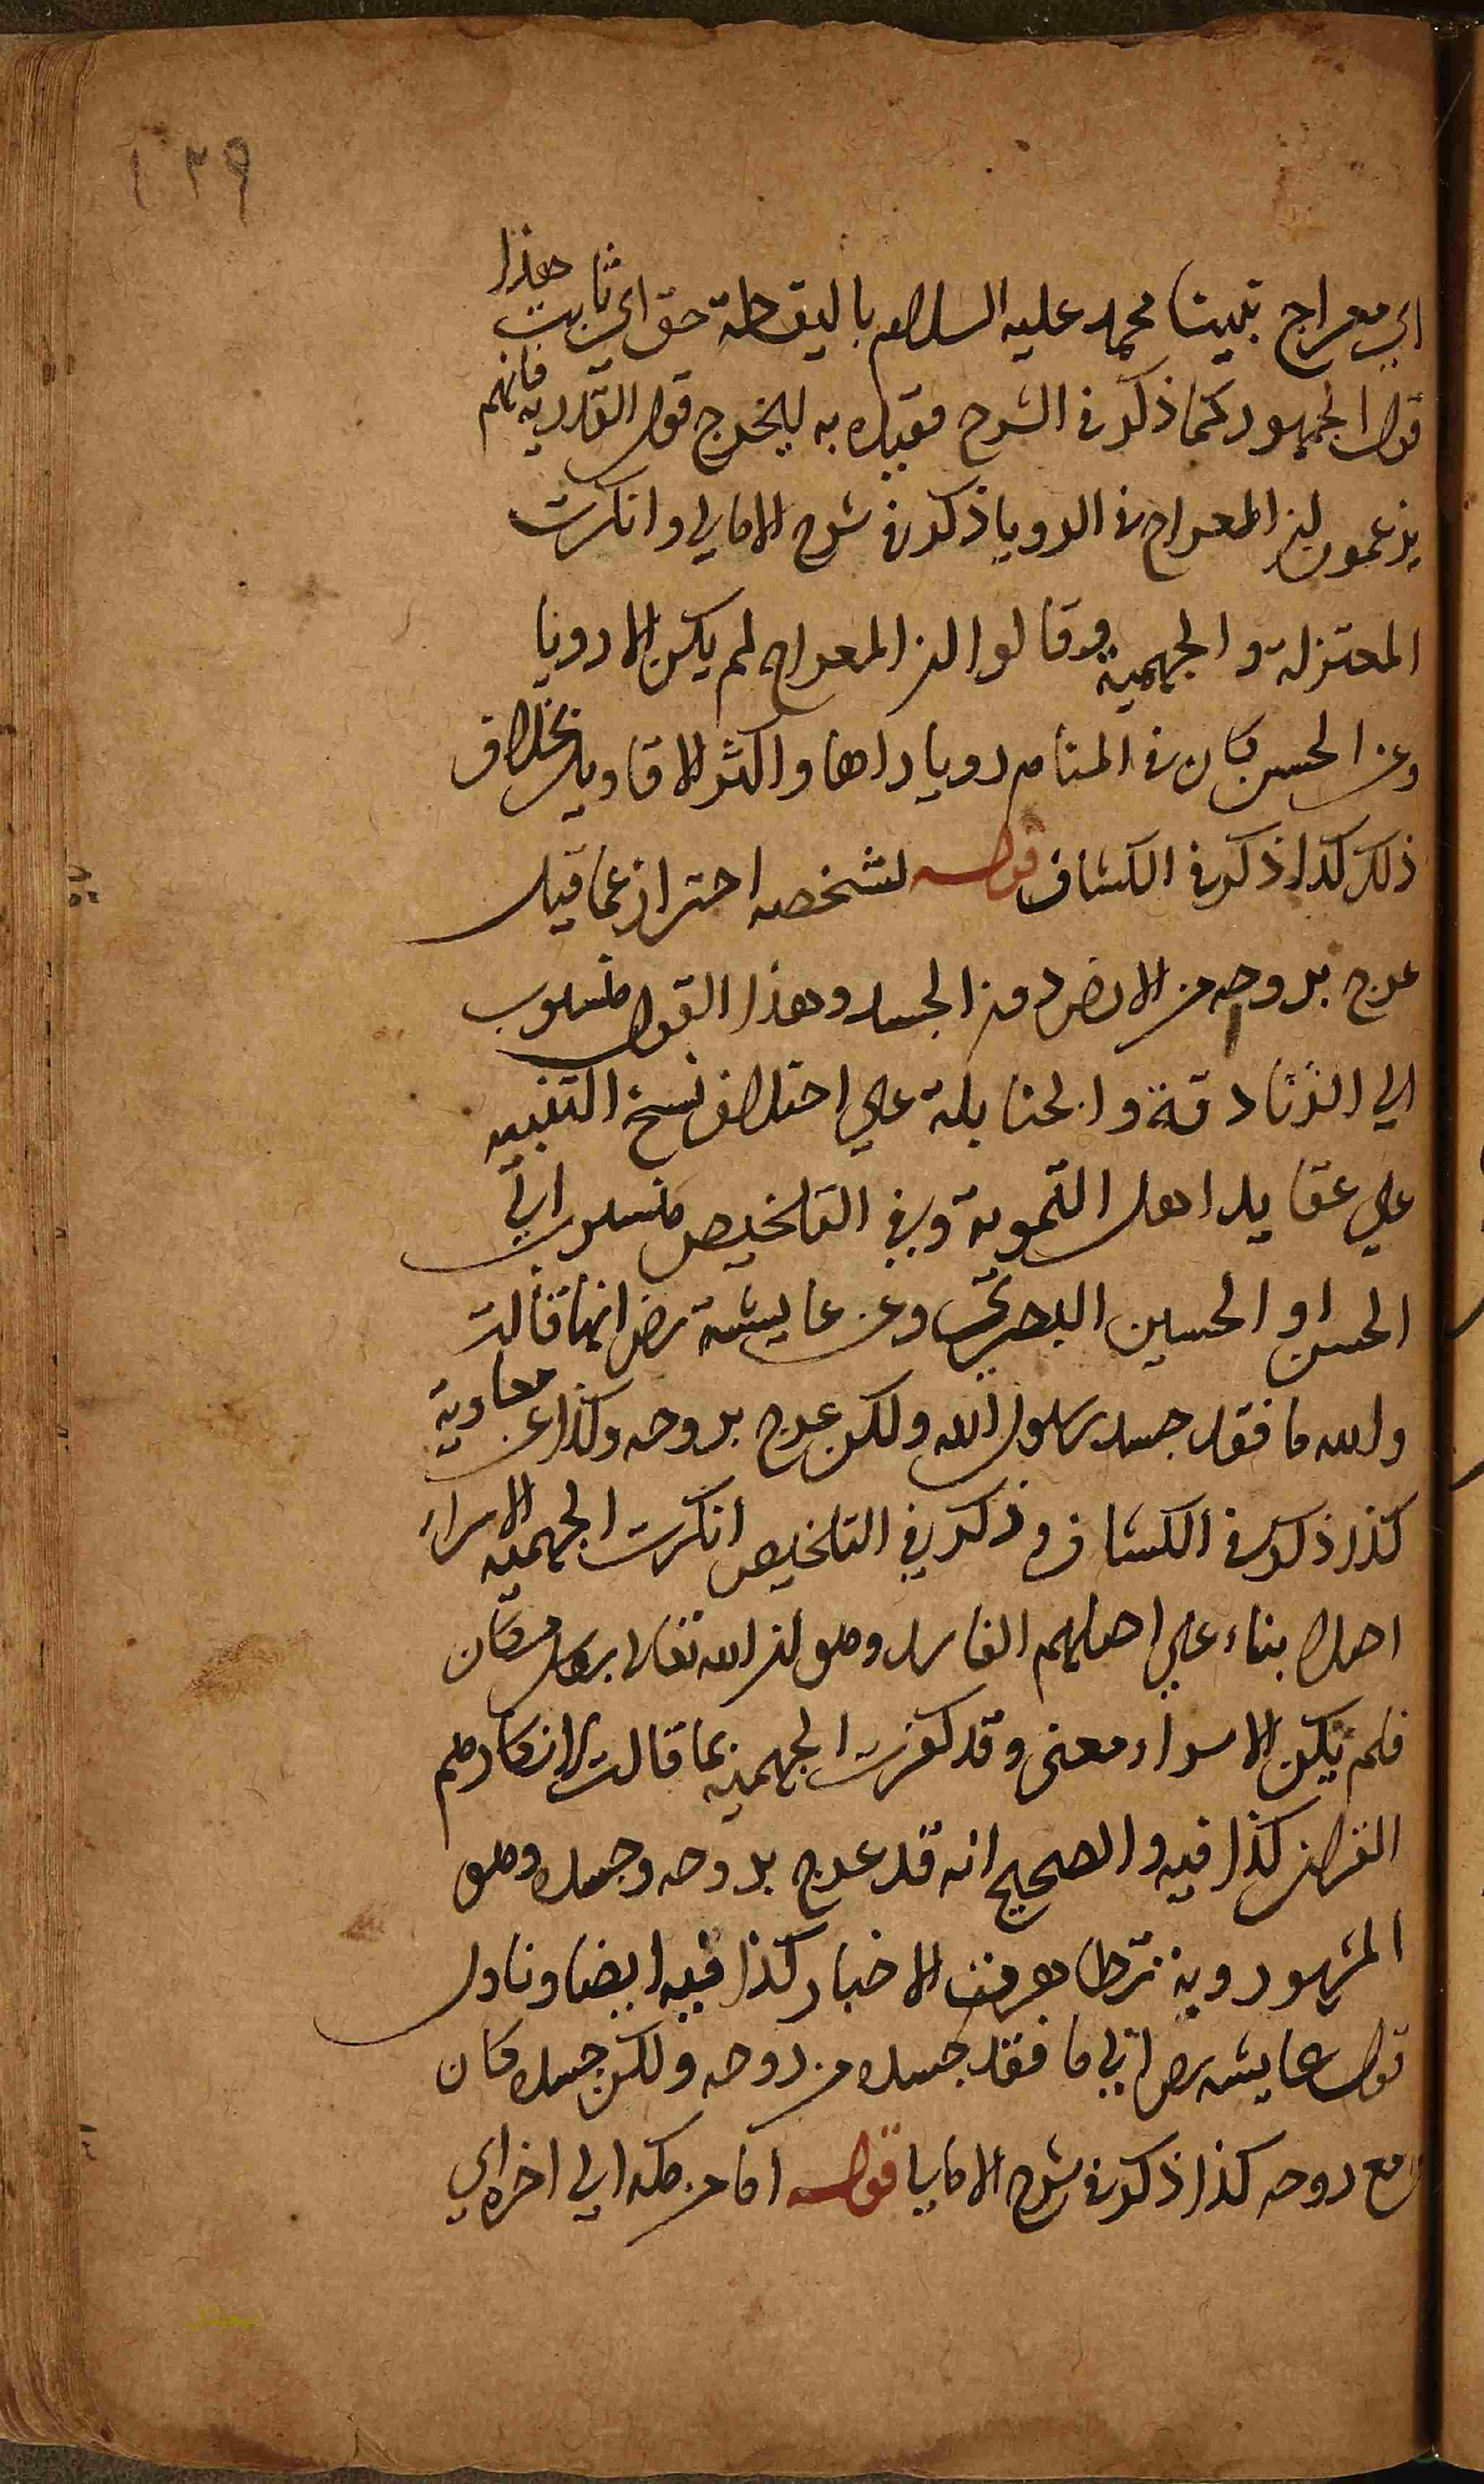 ١٣٩
اي معراج نبينا محمد عليه السلام باليقظة حق اي ثابت هذا
قول الجمهور كما ذكر في الشرح فقيده به ليخرج قول القدرية فانهم
يزعمون ان المعراج في الرويا ذكر في شرح الامالي وانكرت
المعتزلة والجهمية وقالوا ان المعراج لم يكن الا رويا
وعن الحسن كان في المنام رويا راها واكثر الاقاويل بخلاف
ذلك كذا ذكر في الكشاف قوله لشخصه احتراز عما قيل
عرج بروحه من الارض دون الجسد وهذا القول منسوب
الي الزنادقة والحنابلة علي اختلاف نسخ التنبيه
علي عقايد اهل التموية وفي التلخيص منسوب الي
الحسن او الحسين البصري وعن عايشة رض انها قالت
والله ما فقد جسد رسول الله ولكن عرج بروحه وكذا عن معاوية
كذا ذكر في الكشاف وذكر في التلخيص انكرت الجهمية الاسراء
اصلا بناء علي اصلهم الفاسد وهو ان الله تعالى بكل مكان
فلم يكن الاسراء معنى وقد كفرت الجهمية بما قالت لانكارهم
القران كذا فيه والصحيح انه قد عرج بروحه وجسده وهو
المشهور وبه تظاهرت الاخبار كذا فيه ايضا وتاول
قول عايشه رض اي ما فقد جسده من روحه ولكن جسده كان
مع روحه كذا ذكر في شرح الامالي قوله اما من مكه الي اخره اي